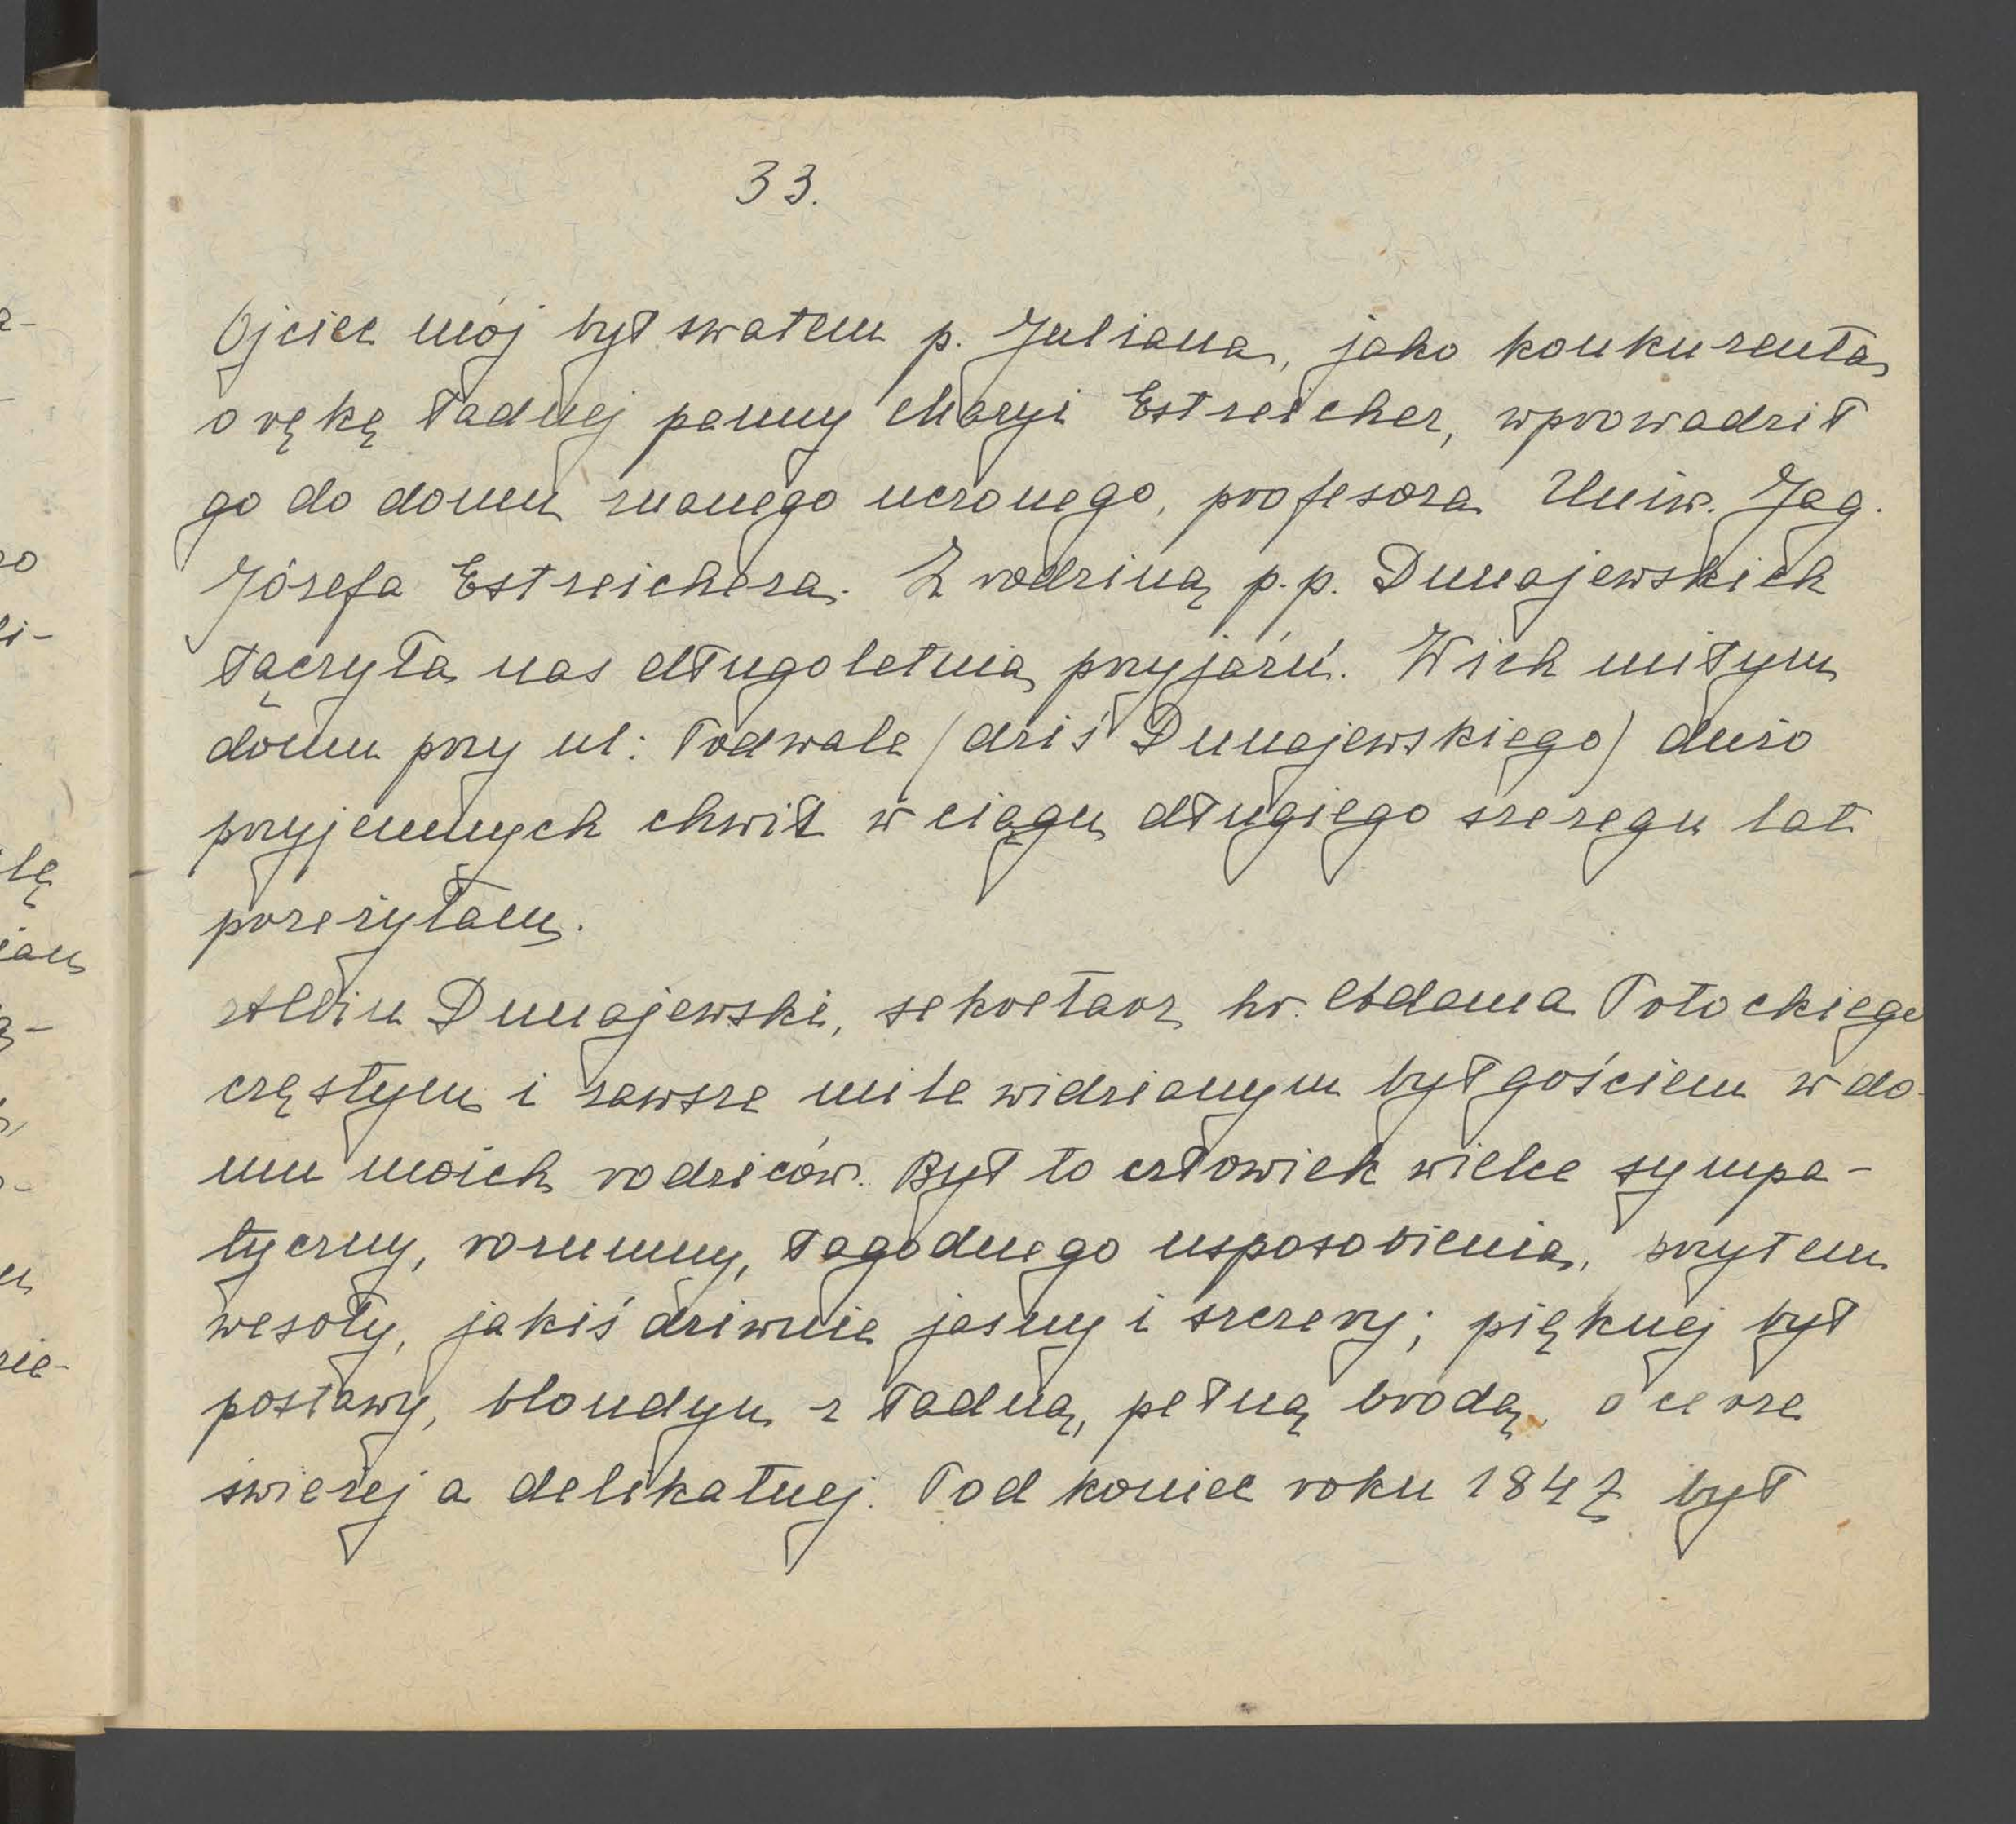 33.
Ojciec mój był swatem p. Juliana, jako konkurenta
o rękę ładnej panny Maryi Estreicher, wprowadził
go do domu znanego uczonego, profesora Uniw. Jag.
Józefa Estreichera. Z rodziną p.p. Dunajewskich
łączyła nas długoletnia przyjaźń. W ich miłym
domu przy ul: Podwale (dziś Dunajewskiego) dużo
przyjemnych chwil w ciągu długiego szeregu lat
przeżyłam.
Albin Dunajewski, sekretarz hr. Adama Potockiego
częstym i zawsze mile widzianym był gościem w do-
mu moich rodziców. Był to człowiek wielce sympa-
tyczny, rozumny, łagodnego usposobienia, przytem
wesoły, jakiś dziwnie jasny i szczery; pięknej był
postawy, blondyn z ładną, pełną brodą, o cerze
świeżej a delikatnej. Pod koniec roku 1847 był